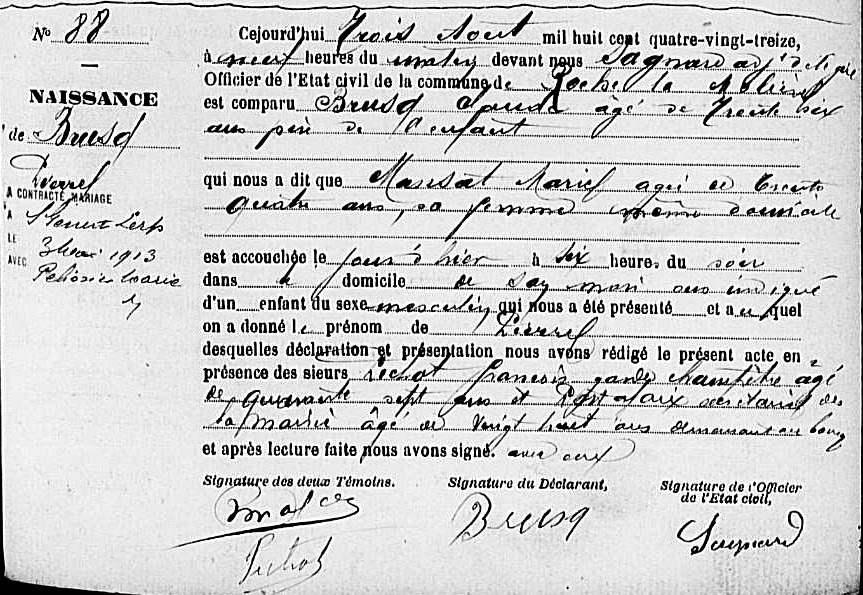 N° 88
NAISSANCE
de Brusq
Pierre
A CONTRACTÉ MARIAGE
A St Genest Lerpt
LE 3 Mai 1913
AVEC Marie
Cejourd'hui Trois Aout mil huit cent quatre-vingt-treize,
à neuf heures du matin devant nous Sagnard adj. dél. gué
Officier de l'Etat civil de la commune de Roche la Molière
est comparu Brusq Claude agé de Trente six
ans père de l'enfant
qui nous a dit que Massat Marie agée de Trente
quatre ans, sa femme même domicile
est accouchée le jour d'hier à six heures du soir
dans le domicile de son mari sus indiqué
d'un enfant du sexe masculin qui nous a été présenté et auquel
on a donné le prénom de Pierre
desquelles déclaration et présentation nous avons rédigé le présent acte en
présence des sieurs Pechot françois garde champêtre âgé
de quarante sept ans et secrétaire de
la Mairie âgé de vingt huit ans demeurant au bourg
et après lecture faite nous avons signé. avec eux
Signature des deux Témoins.
Signature du Déclarant,
Signature de l'Officier
de l'Etat civil,
Brusq
Sagnard
Pechot